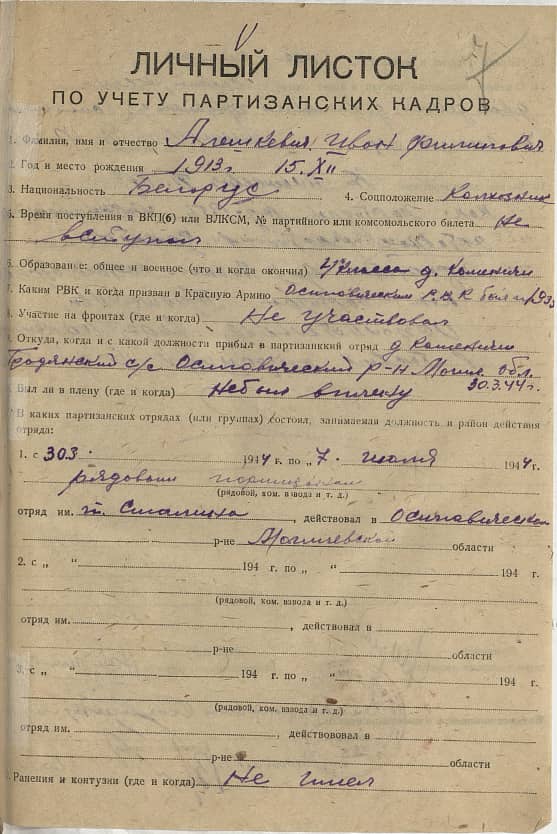 V
ЛИЧНЫЙ ЛИСТОК
ПО УЧЕТУ ПАРТИЗАНСКИХ КАДРОВ
1. Фамилия, имя и отчество Алешкевич Иван Филипович
2. Год и место рождения 1913г 15.XII
3. Национальность Белорус 4. Соцположение Колхозник
5. Время поступления в ВКП(б) или ВЛКСМ, № партийного или комсомольского билета Не
вступал
6. Образование: общее и военное (что и когда окончил) 4 класса д. Каменичи
7. Каким РВК и когда призван в Красную Армию Осиповическим РВК был
8. Участие на фронтах (где и когда) Не участвовал
9. Откуда, когда и с какой должности прибыл в партизанкий отряд д Каменичи
Гродянский с/с Осиповический р-н Моги. обл.
Был ли в плену (где и когда) Не был в плену 30.3.44г.
В каких партизанских отрядах (или группах) состоял, занимаемая должность и район действия
отряда:
1. с 30.3. 1944 г. по „ 7. июля 1944 г.
рядовым
(рядовой, ком. взвода и т. д.)
отряд им. т. Сталина, действовал в Осиповическом
р-не Могилевской области
2. с „ “ 194 г. по „ “ 194 г.
(рядовой, ком. взвода и т. д.)
отряд им. , действовал в
р-не области
3. с „ “ 194 г. по „ “ 194 г.
(рядовой, ком. взвода и т. д.)
отряд им. , действововал в
р-не области
Ранения и контузии (где и когда) Не имел